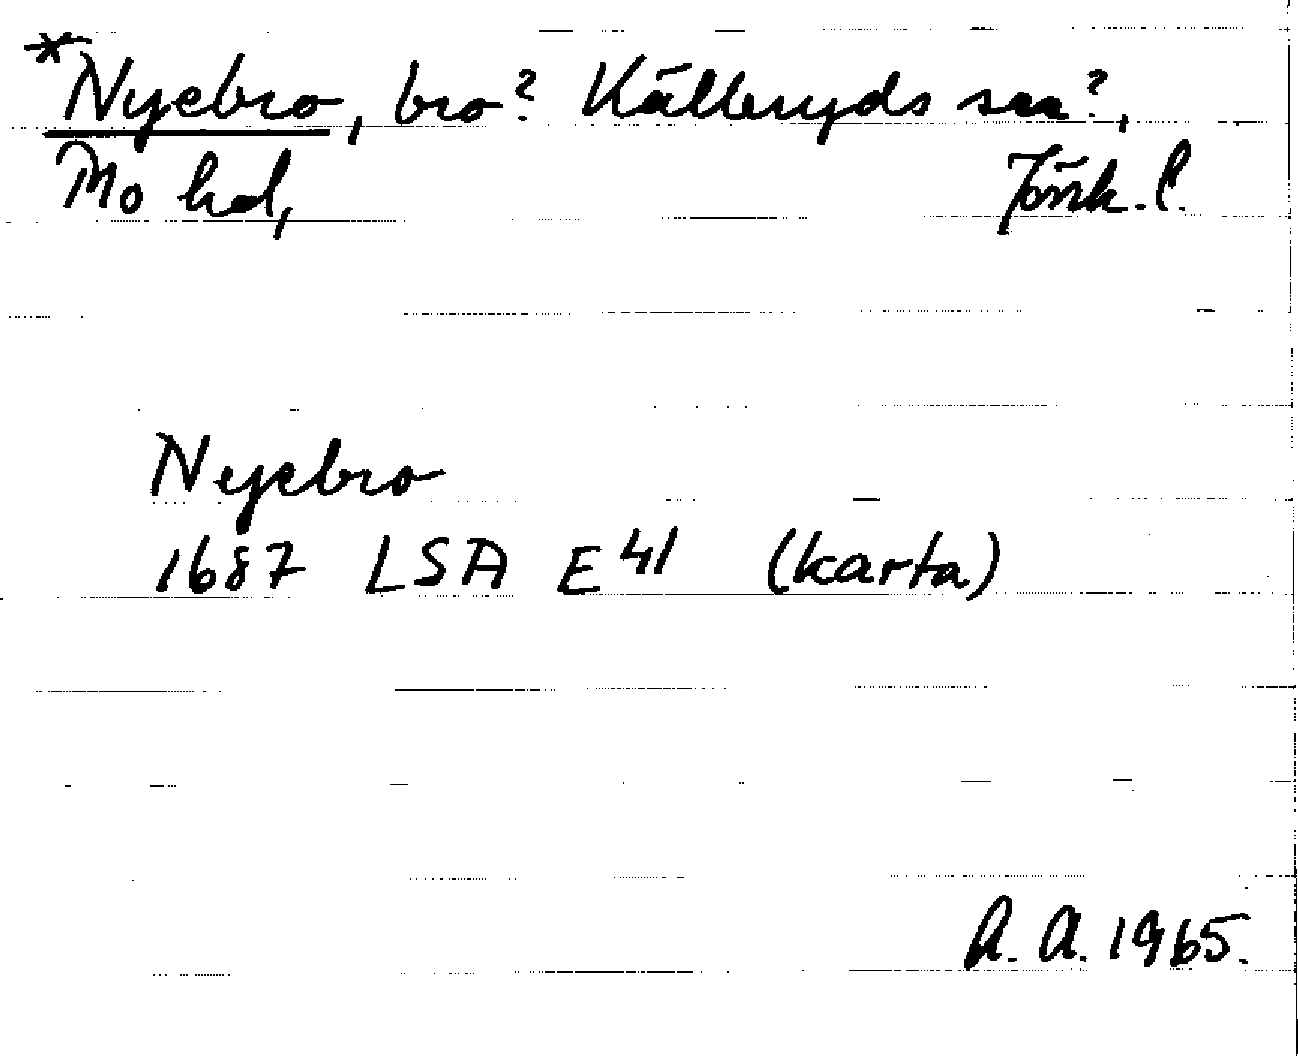 *Nyebro, bro? Källeryds sn?,
Mo hd, Jönk. l.
Nyebro
1687 LSA E 41 (karta)
A. A. 1965.